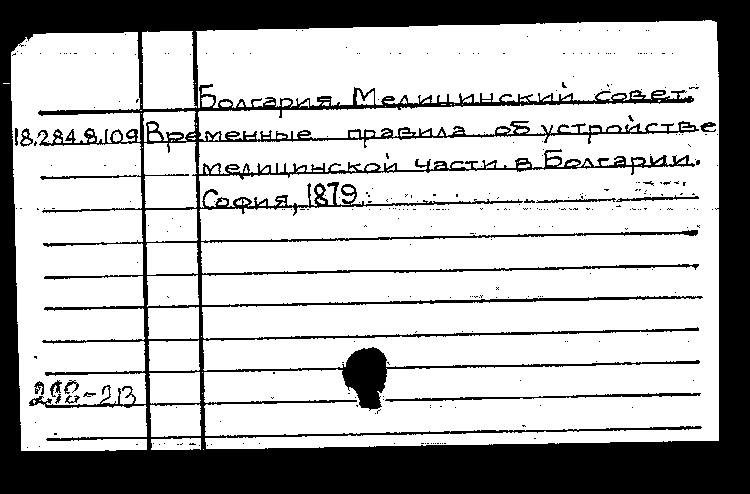 Болгария. Медицинский совет.
18.284.8.109 Временные правила об устройстве
медицинской части в Болгарии.
София, 1879.